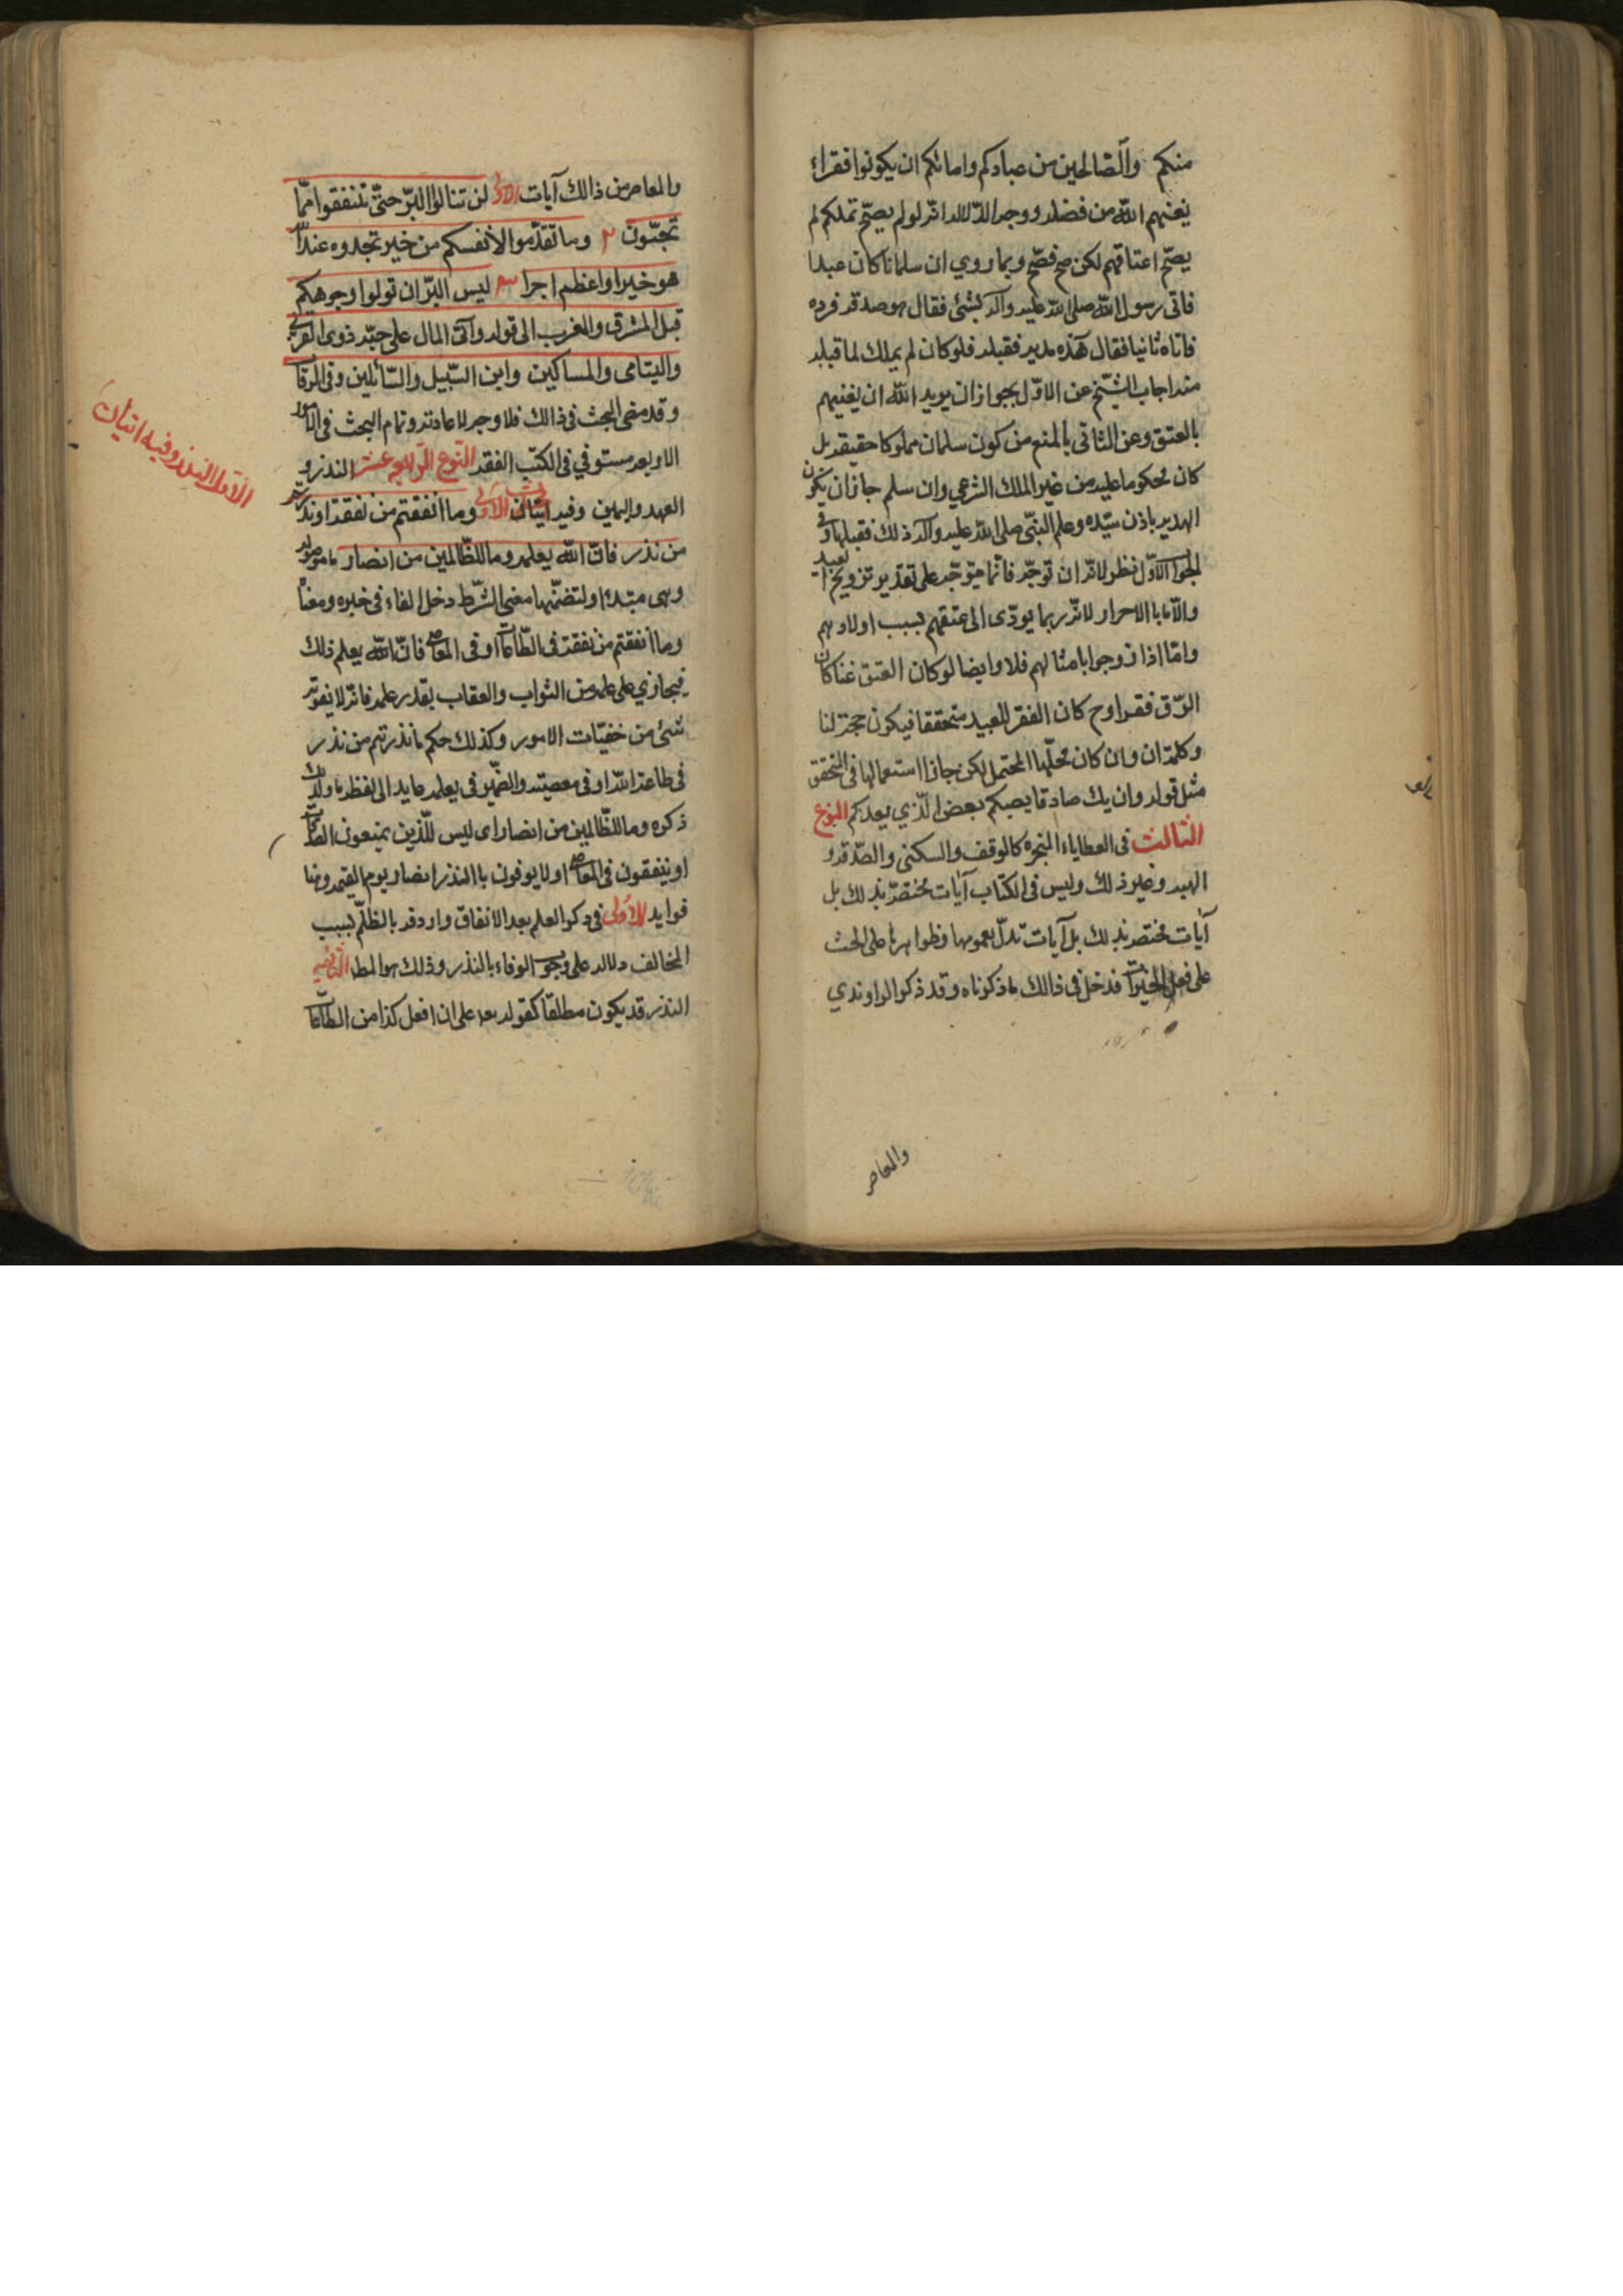 منكم والصّالحين من عبادكم وامائكم ان يكونوا فقراء
يغنيهم الله من فضله ووجه الدّلالة انّه لو لم يصحّ تملكهم لم
يصحّ اعتاقهم لكن صح فصّح وبما روي ان سلمانا كان عبدا
فاتى رسول الله صلى الله عليه وآله بشئ فقال هو صدقة فرده
فاتاه ثانيا فقال هذه هدية فقبله فلو كان لم يملك لما قبله
منه اجاب الشّيخ عن الاوّل بجواز ان يريد الله ان يغنيهم
بالعتق وعن الثاني بالمنع من كون سلمان مملوكا حقيقة بل
كان محكوما عليه من غير الملك الشرعي وان سلم جاز ان يكون
الهدية باذن سيّده وعلم النبّي صلى الله عليه وآله ذلك فقبلها وفى
الجواب الاوّل نظر لانّه ان توجّه فانّما يتوجّه على تقدير تزويج العبيد
والاماء بالاحرار لانّه ربما يودّى الى عتقهم بسبب اولادهم
وامّا اذا زوجوا بامثالهم فلا وايضا لو كان العتق غنا كان
الرّق فقرا وح كان الفقر للعبيد متحققا فيكون حجة لنا
وكلمة ان وان كان محلّها المحتمل لكن جاز استعمالها فى المتحقق
مثل قوله وان يك صادقا يصبكم بعض الّذي يعدكم النوع
الثالث فى العطاياء المنجزه كالوقف والسكنى والصّدقة و
الهبة وغير ذلك وليس فى الكتاب آيات مختصّة بذلك بل
آيات مختصة بذلك بل آيات تدلّ بعمومها وظواهرها على الحث
على فعل الخيرات فدخل فى ذالك ما ذكرناه وقد ذكر الراوندي
والمعاصر
والمعاصر من ذالك آيات الاولى لن تنالوا البّر حتّى تنفقوا ممّا
تحبّون ٢ وما تقدّموا لأنفسكم من خير تجدوه عند الله
هو خيرا واعظم اجرا ٣ ليس البّر ان تولوا وجوهكم
قبل المشرق والمغرب الى قوله وآتى المال على حبّه ذوى القربى
واليتامى والمساكين وابن السّبيل والسّائلين وفى الرّقاب
وقد مضى البحث فى ذالك فلا وجه لاعادته وتمام البحث فى الامور
الاربعه مستوفي فى الكتب الفقه النّوع الرّابع عشر النذر و
العهد واليمين وفيه آيتان الاولى وما انفقتم من نفقة او نذرتم
من نذر فانّ الله يعلمه وما للظّالمين من انصار ما موصوله
وهى مبتدا ولتضمّنها معنى الشّرط دخل الفاء فى خبره ومعناه
وما أنفقتم من نفقة فى الطّاعات او فى المعاصى فانّ الله يعلم ذلك
فيجازي على علمه من الثواب والعقاب بقدر علمه فانّه لا يفوته
شئ من خفيّات الامور وكذلك حكم ما نذرتم من نذر
فى طاعة الله او فى معصيته والضّمير فى يعلمه عايد الى لفظه ما ولذلك
ذكره وما للظّالمين من انصار اى ليس للّذين يمنعون الصّدقات
او ينفقون فى المعاصى او لا يوفون باالنذر انصار يوم القيمة وهنا
فوايد الاولى فى ذكر العلم بعد الانفاق واردفه بالظلّم بسبب
المخالف دلاله على وجوب الوفاء بالنذر وذلك هو المط الثّانيه
النذر قد يكون مطلقا كقوله لله على ان افعل كذا من الطّاعات
الاول النذر وفيه ايتان